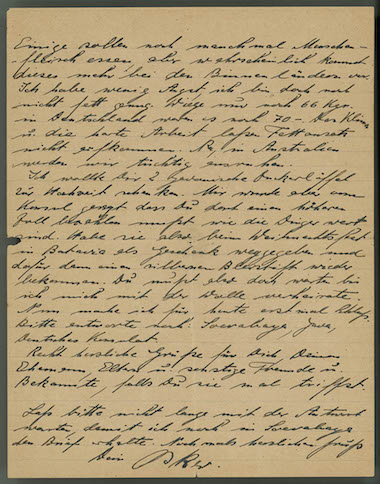 Einige sollen noch manchmal Menschen-
fleisch essen, aber wahrscheinlich kommt
dieses mehr bei den Binnenländern vor.
Ich habe wenig Angst, ich bin doch noch
nicht fett genug. Wiege nur noch 66 Kgr.
in Deutschland waren es noch 70 – Das Klima
u. die harte Arbeit lassen Fettansatz
nicht aufkommen. Na, in Australien
werden wir tüchtig ausruhen.
Ich wollte Dir 2 javanische Zuckerlöffel
zur Hochzeit schenken. Mir wurde aber vom
Konsul gesagt dass Du dort einen höheren
Zoll bezahlen musst wie die Dinger wert
sind. Habe sie also beim Weihnachtsfest
in Batavia als Geschenk weggegeben und
dafür dann einen silbernen Bleistift wieder
bekommen. Du musst also doch warten bis
ich mich mit der Wolle verheirate.
Nun mache ich für heute erst mal Schluß.
Bitte antworte nach: Soerabaya, Java,
Deutsches Konsulat.
Recht herzliche Grüße für Dich, Deinen
Ehemann, Eltern u. sonstige Freunde u.
Bekannte, falls Du sie mal triffst.
Laß bitte nicht lange mit der Antwort
warten, damit ich noch in Soerabaya
den Brief erhalte. Nochmals herzlichen Gruß
Dein